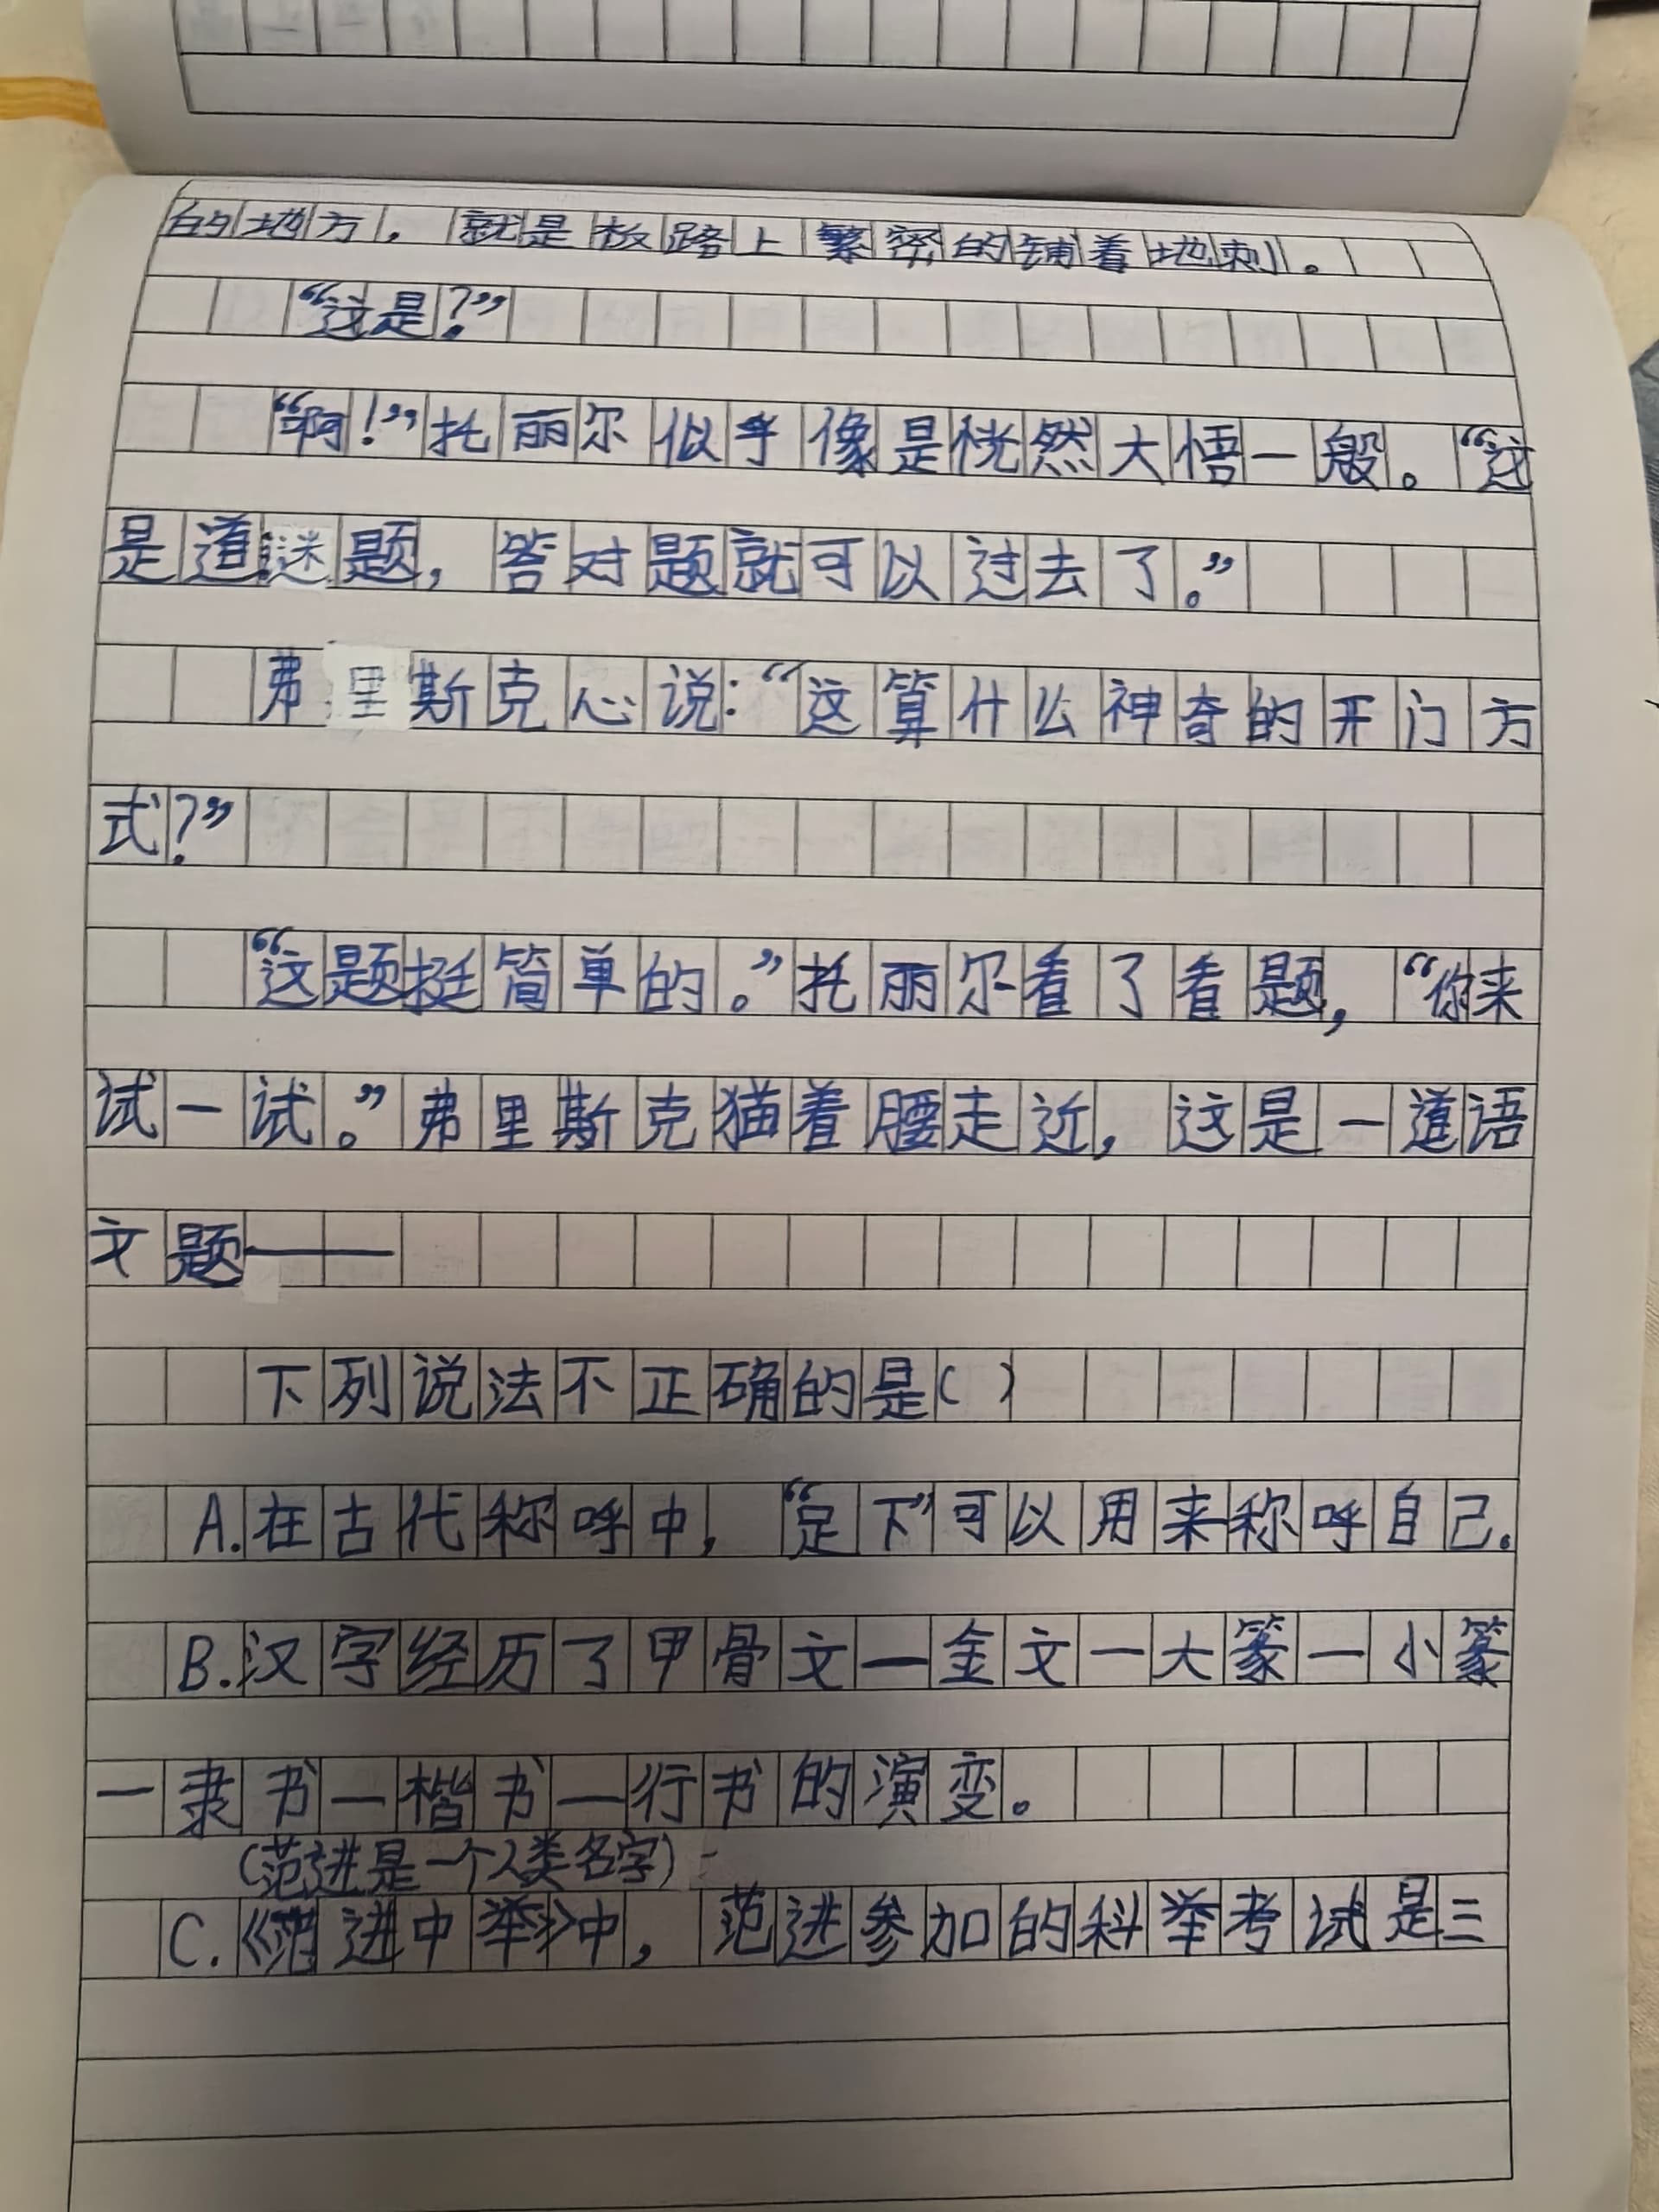 的地方，就是板路上繁密的铺着地刺。
“这是？”
“啊！”托丽尔似乎像是恍然大悟一般。“这
是道谜题，答对题就可以过去了。”
弗里斯克心说：“这算什么神奇的开门方
式？”
“这题挺简单的。”托丽尔看了看题，“你来
试一试。”弗里斯克猫着腰走近，这是一道语
文题——
下列说法不正确的是（ ）
A.在古代称呼中，“足下”可以用来称呼自己。
B.汉字经历了甲骨文—金文—大篆—小篆
—隶书—楷书—行书的演变。
（范进是一个人类名字）
C.《范进中举》中，范进参加的科举考试是三